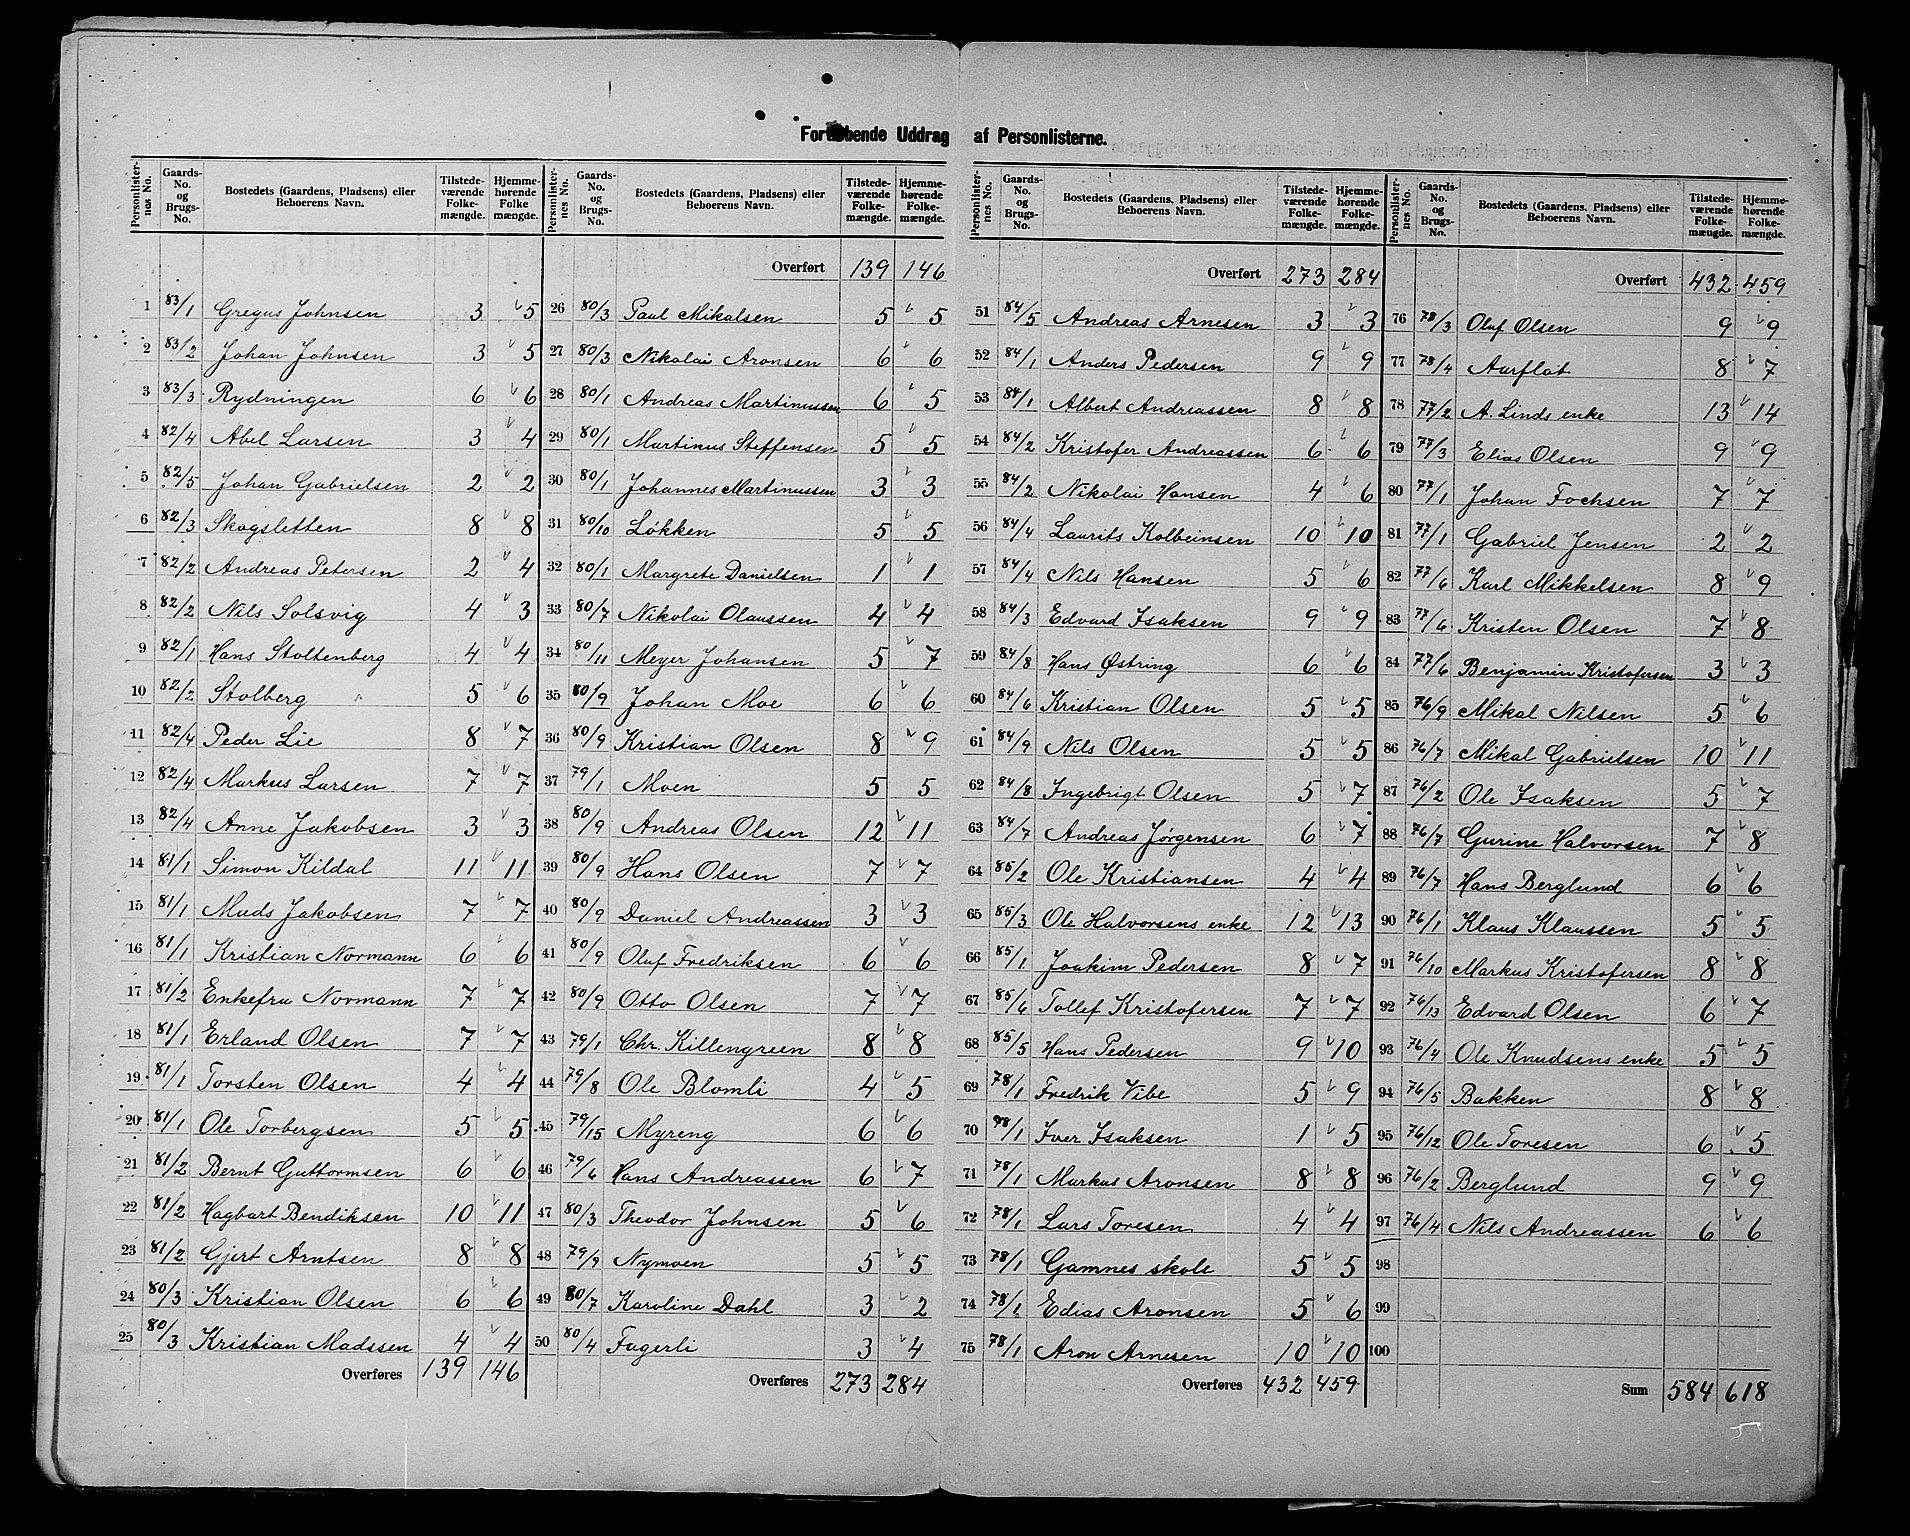 Forløbende Uddrag af Personlisterne.
Personlisternes No. | Gaards-No. og Brugs-No. | Bostedets (Gaardens, Pladsens) eller Beboerens Navn. | Tilstedeværende Folkemængde. | Hjemmehørende Folkemængde.
1 83/1 Gregus Johnsen 3 5
2 83/2 Johan Johnsen 3 5
3 83/3 Rydningen 6 6
4 82/4 Abel Larsen 3 4
5 82/5 Johan Gabrielsen 2 2
6 82/3 Skogsletten 8 8
7 82/2 Andreas Petersen 2 4
8 82/2 Nils Solsvig 4 3
9 82/1 Hans Stoltenberg 4 4
10 82/2 Stolberg 5 6
11 82/4 Peder Lie 8 7
12 82/4 Markus Larsen 7 7
13 82/4 Anne Jakobsen 3 3
14 81/1 Simon Kildal 11 11
15 81/1 Mads Jakobsen 7 7
16 81/1 Kristian Normann 6 6
17 81/2 Enkefru Normann 7 7
18 81/1 Erland Olsen 7 7
19 81/1 Torsten Olsen 4 4
20 81/1 Ole Torbergsen 5 5
21 81/2 Bernt Guttormsen 6 6
22 81/2 Hagbart Bendiksen 10 11
23 81/2 Gjert Arntsen 8 8
24 80/3 Kristian Olsen 6 6
25 80/3 Kristian Madssen 4 4
Overføres 139 146
Personlisternes No. | Gaards-No. og Brugs-No. | Bostedets (Gaardens, Pladsens) eller Beboerens Navn. | Tilstedeværende Folkemængde. | Hjemmehørende Folkemængde.
Overført 139 146
26 80/3 Paul Mikalsen 5 5
27 80/3 Nikolai Aronsen 6 6
28 80/1 Andreas Martinussen 6 5
29 80/1 Martinus Steffensen 5 5
30 80/1 Johannes Martinussen 3 3
31 80/10 Løkken 5 5
32 80/1 Margrete Danielsen 1 1
33 80/7 Nikolai Olaussen 4 4
34 80/11 Meyer Johansen 5 7
35 80/9 Johan Moe 6 6
36 80/9 Kristian Olsen 8 9
37 79/1 Moen 5 5
38 80/9 Andreas Olsen 12 11
39 80/9 Hans Olsen 7 7
40 80/9 Daniel Andreassen 3 3
41 80/9 Oluf Fredriksen 6 6
42 80/9 Otto Olsen 7 7
43 79/1 Chr. Killengreen 8 8
44 79/8 Ole Blomli 4 5
45 79/15 Myreng 6 6
46 79/6 Hans Andreassen 6 7
47 80/3 Theodor Johnsen 5 6
48 79/9 Nymoen 5 5
49 80/7 Karoline Dahl 3 2
50 80/4 Fagerli 3 4
Overføres 273 284
Personlisternes No. | Gaards-No. og Brugs-No. | Bostedets (Gaardens, Pladsens) eller Beboerens Navn. | Tilstedeværende Folkemængde. | Hjemmehørende Folkemængde.
Overført 273 284
51 84/5 Andreas Arnesen 3 3
52 84/1 Anders Pedersen 9 9
53 84/1 Albert Andreassen 8 8
54 84/2 Kristofer Andreassen 6 6
55 84/2 Nikolai Hansen 4 6
56 84/4 Laurits Kolbeinsen 10 10
57 84/4 Nils Hansen 5 6
58 84/3 Edvard Isaksen 9 9
59 84/8 Hans Østring 6 6
60 84/6 Kristian Olsen 5 5
61 84/9 Nils Olsen 5 5
62 84/8 Ingebrigt Olsen 5 7
63 84/7 Andreas Jørgensen 6 7
64 85/2 Ole Kristiansen 4 4
65 85/3 Ole Halvorsens enke 12 13
66 85/1 Joakim Pedersen 8 7
67 85/6 Tollef Kristofersen 7 7
68 85/5 Hans Pedersen 9 10
69 78/1 Fredrik Vibe 5 9
70 98/1 Iver Isaksen 1 5
71 78/1 Markus Aronsen 8 8
72 78/1 Lars Toresen 4 4
73 78/1 Gamnes skole 5 5
74 78/1 Edias Aronsen 5 6
75 78/1 Aron Arnesen 10 10
Overføres 432 459
Personlisternes No. | Gaards-No. og Brugs-No. | Bostedets (Gaardens, Pladsens) eller Beboerens Navn. | Tilstedeværende Folkemængde. | Hjemmehørende Folkemængde.
Overført 432 459
76 78/3 Oluf Olsen 9 9
77 78/4 Aurflat 8 7
78 77/2 A. Linds enke 13 14
79 77/3 Elias Olsen 9 9
80 77/1 Johan Fochsen 7 7
81 77/1 Gabriel Jensen 2 2
82 77/6 Karl Mikkelsen 8 9
83 77/6 Kristen Olsen 7 8
84 77/6 Benjamin Kristofersen 3 3
85 76/9 Mikal Nilsen 5 6
86 76/7 Mikal Gabrielsen 10 11
87 76/2 Ole Isaksen 5 7
88 76/7 Gurine Halvorsen 7 8
89 76/7 Hans Berglund 6 6
90 76/1 Klaus Klaussen 5 5
91 76/10 Markus Kristofersen 8 8
92 76/13 Edvard Olsen 6 7
93 76/4 Ole Knudsens enke 5 5
94 76/5 Bakken 8 8
95 76/12 Ole Toresen 6 5
96 76/2 Berglund 9 9
97 76/4 Nils Andreassen 6 6
98
99
100
Sum 584 618